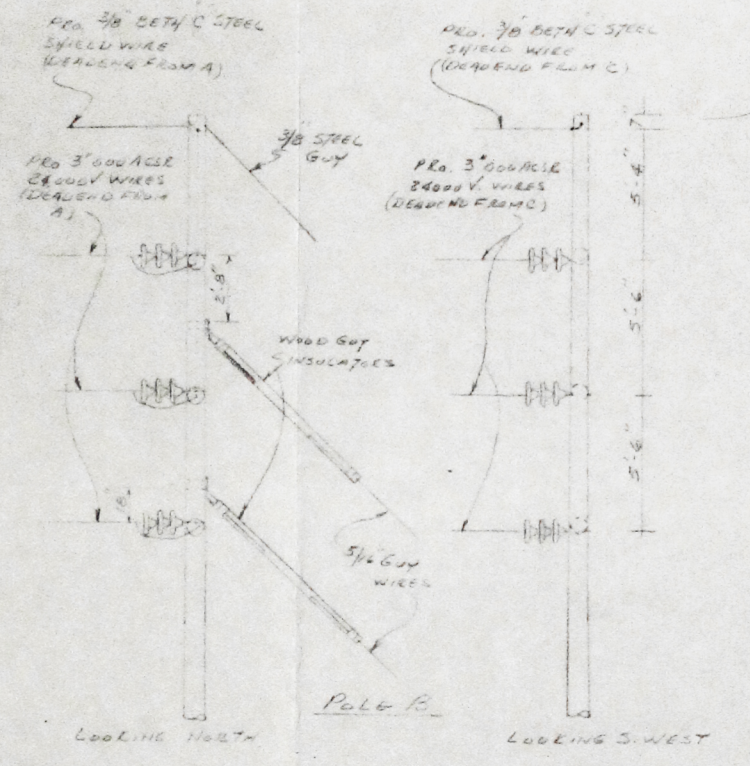 PRO. 3/8" BETH "C" STEEL
SHIELD WIRE
(DEADEND FROM A)
3/8 STEEL
GUY
PRO 3"000 ACSR
24000V WIRES
(DEADEND FROM
A)
2'8"
WOOD GUY
INSULATORS
18"
5/16" GUY
WIRES
LOOKING NORTH
POLE B
PRO. 3/8" BETH "C" STEEL
SHIELD WIRE
(DEADEND FROM C)
PRO. 3"000 ACSR
24000V. WIRES
(DEADEND FROM C)
7"
5'-4"
5'-6"
5'-6"
LOOKING S. WEST